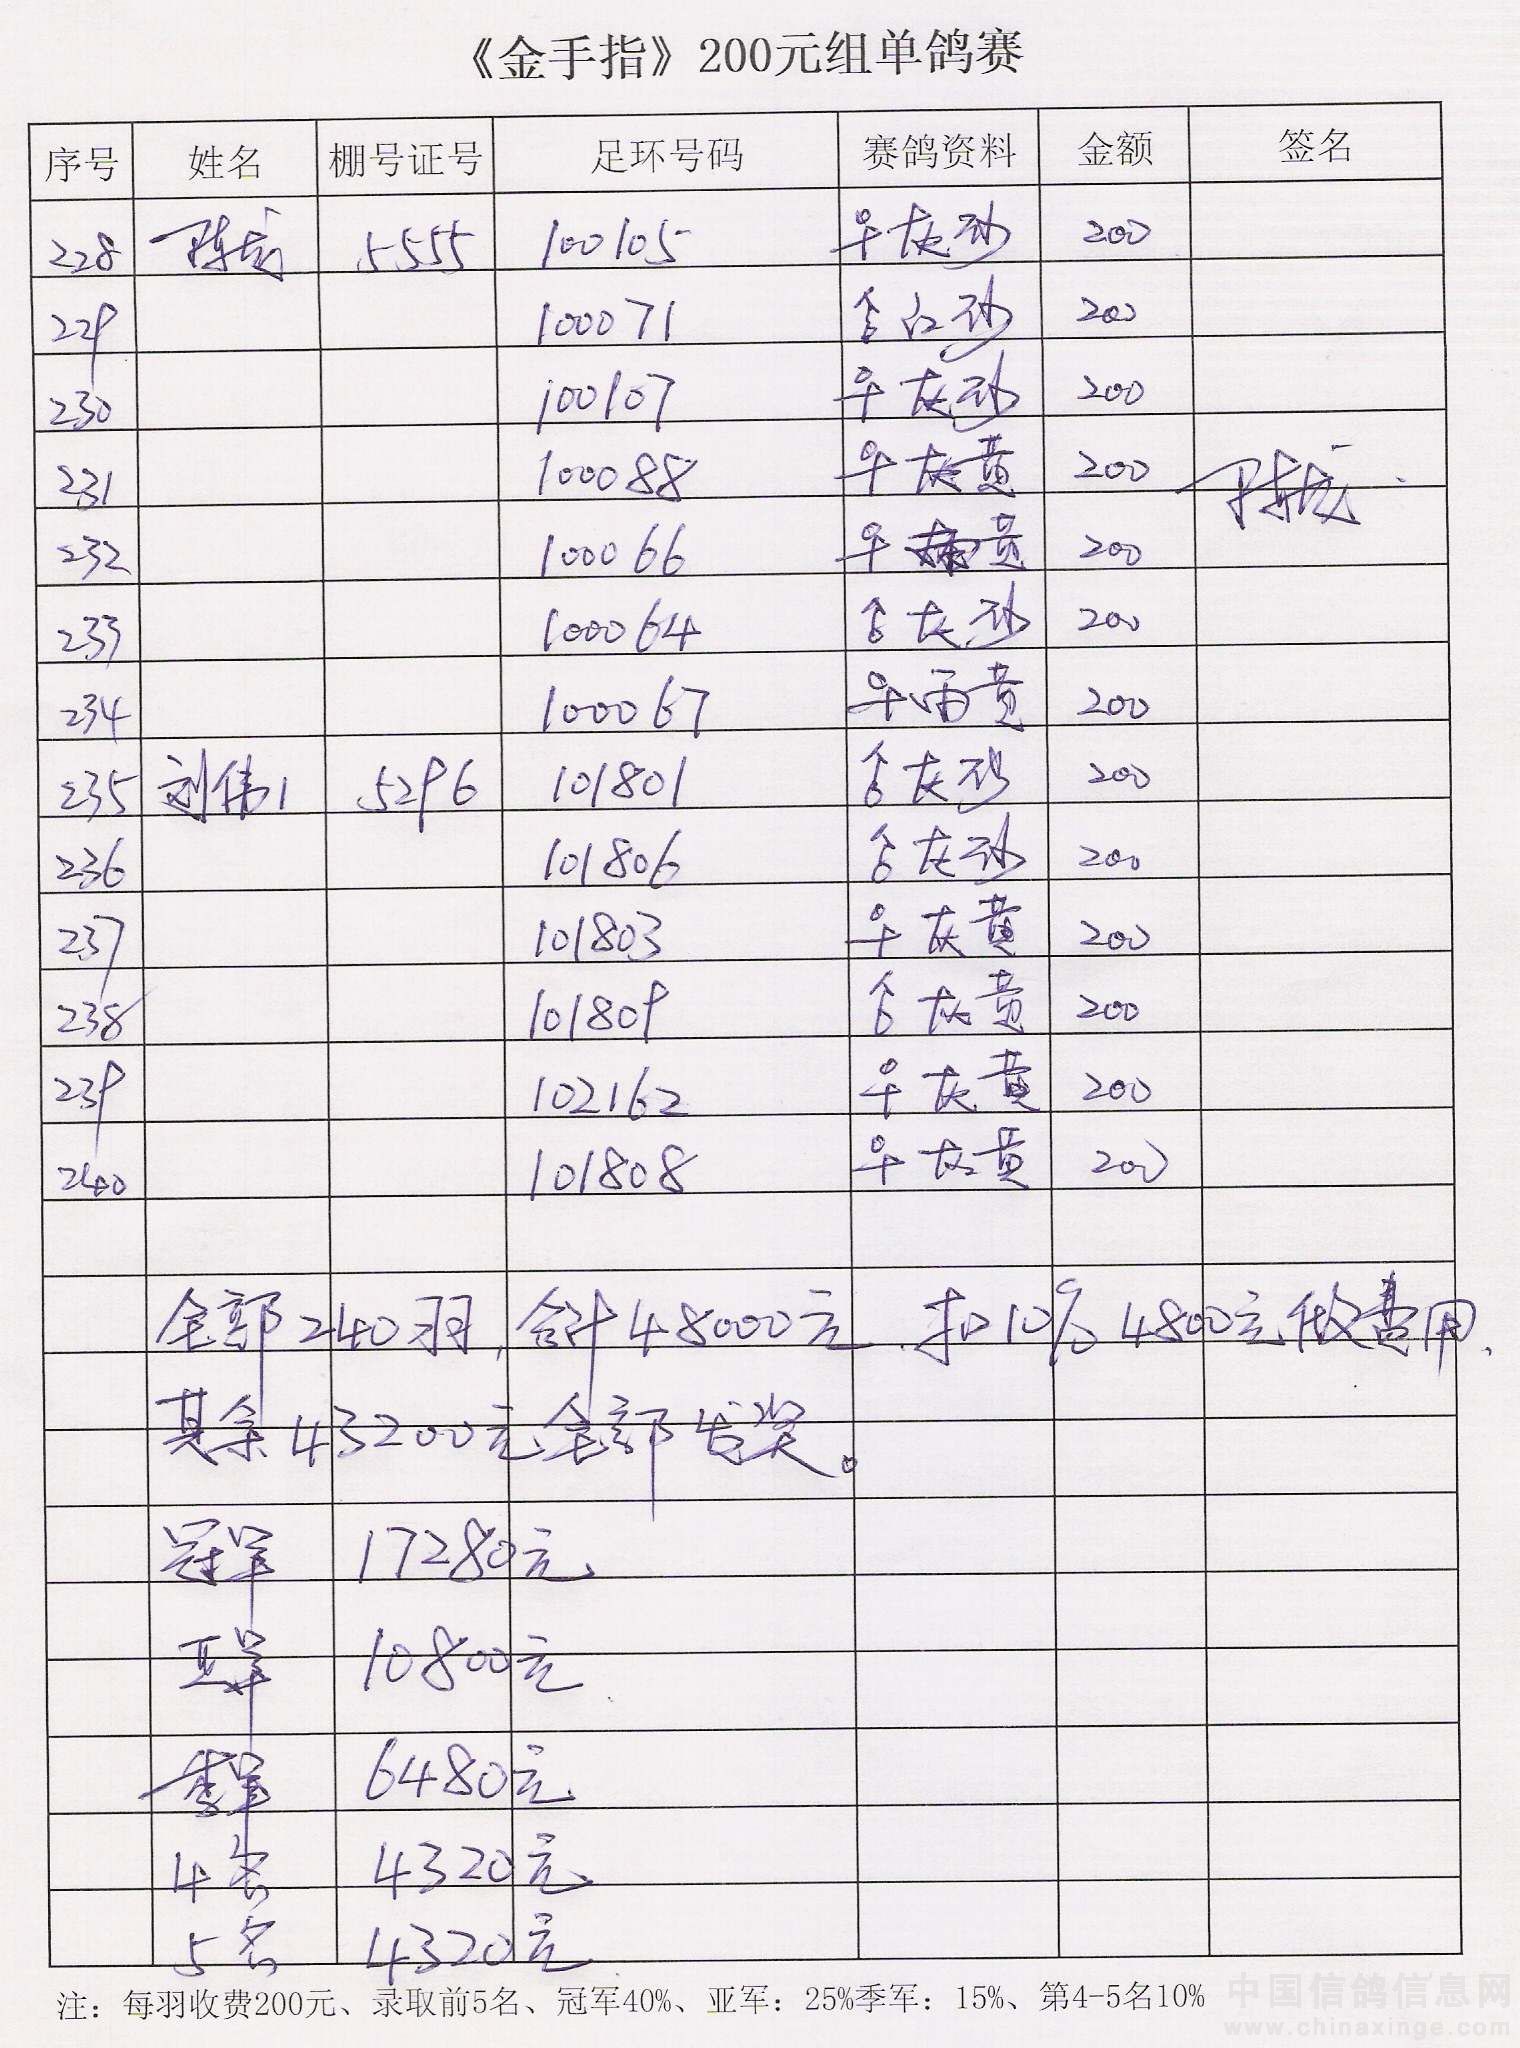 《金手指》200元组单鸽赛
序号 姓名 棚号证号 足环号码 赛鸽资料 金额 签名
228 5555 100105 ♀灰砂 200
229 100071 ♂红砂 200
230 100107 ♀灰砂 200
231 100088 ♀灰黄 200
232 100066 ♀ 黄 200
233 100064 ♂灰砂 200
234 100067 ♀雨黄 200
235 刘伟1 5296 101801 ♂灰砂 200
236 101806 ♂灰砂 200
237 101803 ♀灰黄 200
238 101809 ♂灰黄 200
239 102162 ♀灰黄 200
240 101808 ♀灰黄 200
全部240羽,合计48000元.扣10% 4800元做费用.
其余43200元全部发奖。
冠军 17280元
亚军 10800元
季军 6480元
4名 4320元
5名 4320元
注：每羽收费200元、录取前5名、冠军40%、亚军：25%季军：15%、第4-5名10%
中国信鸽信息网
www.chinaxinge.com